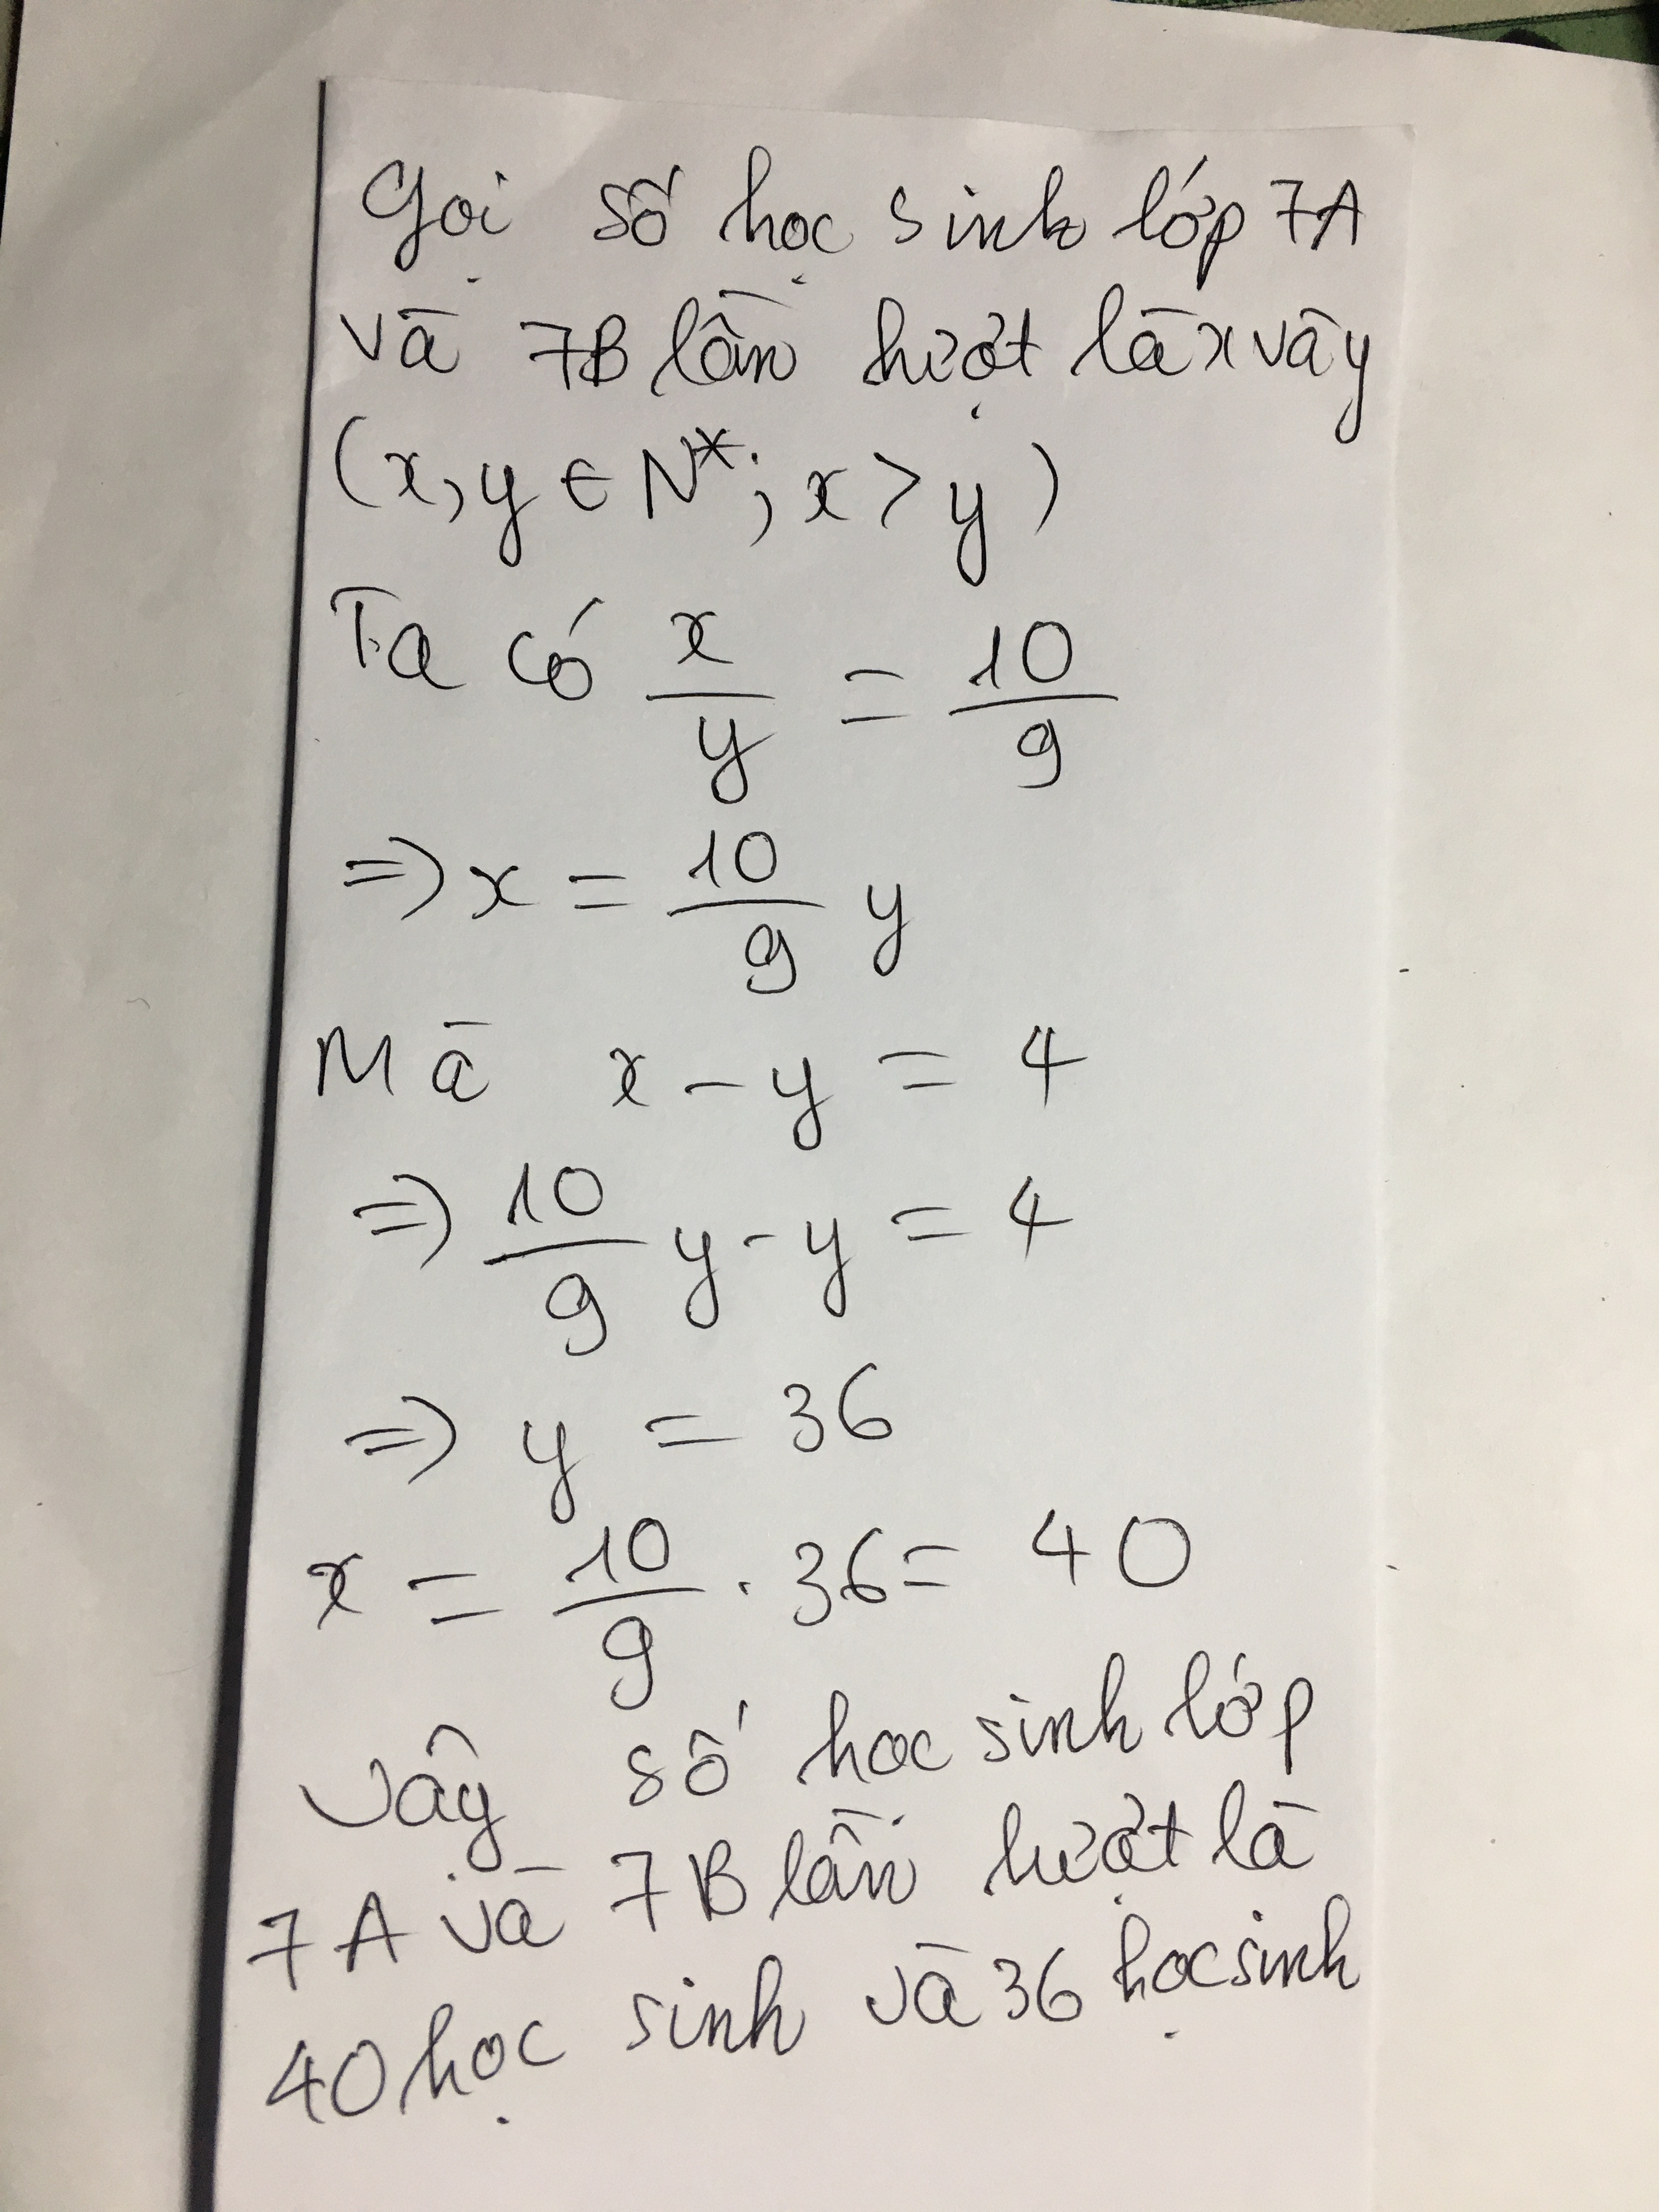 Gọi số học sinh lớp 7A
và 7B lần lượt là x và y
(x, y ∈ N*; x > y)
Ta có x/y = 10/9
=> x = 10/9 y
Mà x - y = 4
=> 10/9 y - y = 4
=> y = 36
x = 10/9 . 36 = 40
Vậy số học sinh lớp
7A và 7B lần lượt là
40 học sinh và 36 học sinh